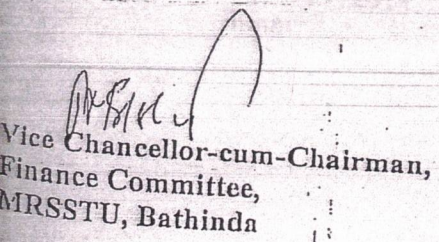 Vice Chancellor-cum-Chairman,
Finance Committee,
MRSSTU, Bathinda